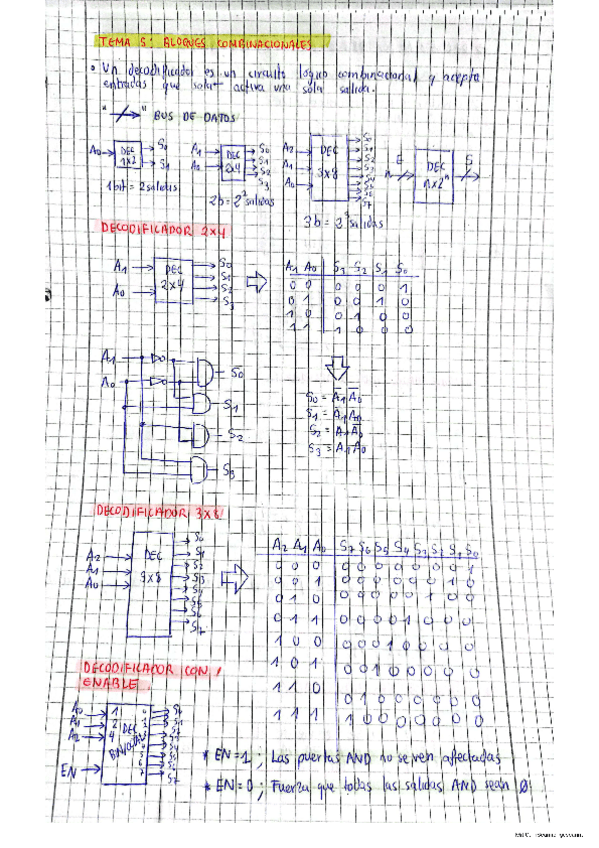 TEMA 5: BLOQUES COMBINACIONALES
• Un decodificador es un circuito lógico combinacional y acepta
entradas que solo activa una sola salida.
" " BUS DE DATOS
A0 DEC 1x2 S0 S1
1bit = 2 salidas
A1 A0 DEC 2x4 S0 S1 S2 S3
2b = 2² salidas
A2 A1 A0 DEC 3x8 S0 S1 S2 S3 S4 S5 S6 S7
3b = 2³ salidas
E n DEC nx2ⁿ S
DECODIFICADOR 2x4
A1 A0 DEC 2x4 S0 S1 S2 S3
A1 A0 S3 S2 S1 S0
0 0 0 0 0 1
0 1 0 0 1 0
1 0 0 1 0 0
1 1 1 0 0 0
A1
A0
S0
S1
S2
S3
S0 = A̅1 A̅0
S1 = A̅1 A0
S2 = A1 A̅0
S3 = A1 A0
DECODIFICADOR 3x8
A2 A1 A0 DEC 3x8 S0 S1 S2 S3 S4 S5 S6 S7
A2 A1 A0 S7 S6 S5 S4 S3 S2 S1 S0
0 0 0 0 0 0 0 0 0 0 1
0 0 1 0 0 0 0 0 0 1 0
0 1 0 0 0 0 0 0 1 0 0
0 1 1 0 0 0 0 1 0 0 0
1 0 0 0 0 0 1 0 0 0 0
1 0 1 0 0 1 0 0 0 0 0
1 1 0 0 1 0 0 0 0 0 0
1 1 1 1 0 0 0 0 0 0 0
DECODIFICADOR CON
ENABLE
A0 A1 A2 EN 1 2 4 DEC 0 1 2 3 4 5 6 7 S0 S1 S2 S3 S4 S5 S6 S7
* EN=1; Las puertas AND no se ven afectadas
* EN=0; Fuerza que todas las salidas AND sean 0